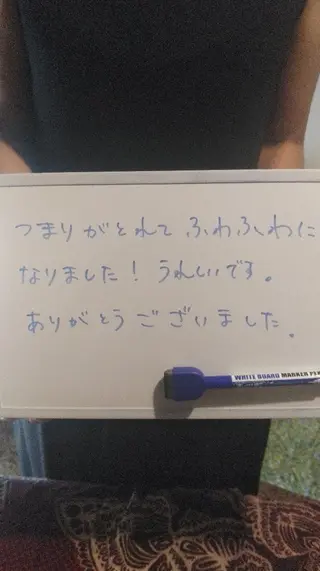 つまりがとれて ふわふわに
なりました！うれしいです。
ありがとうございました。
WHITE BOARD MARKER PE